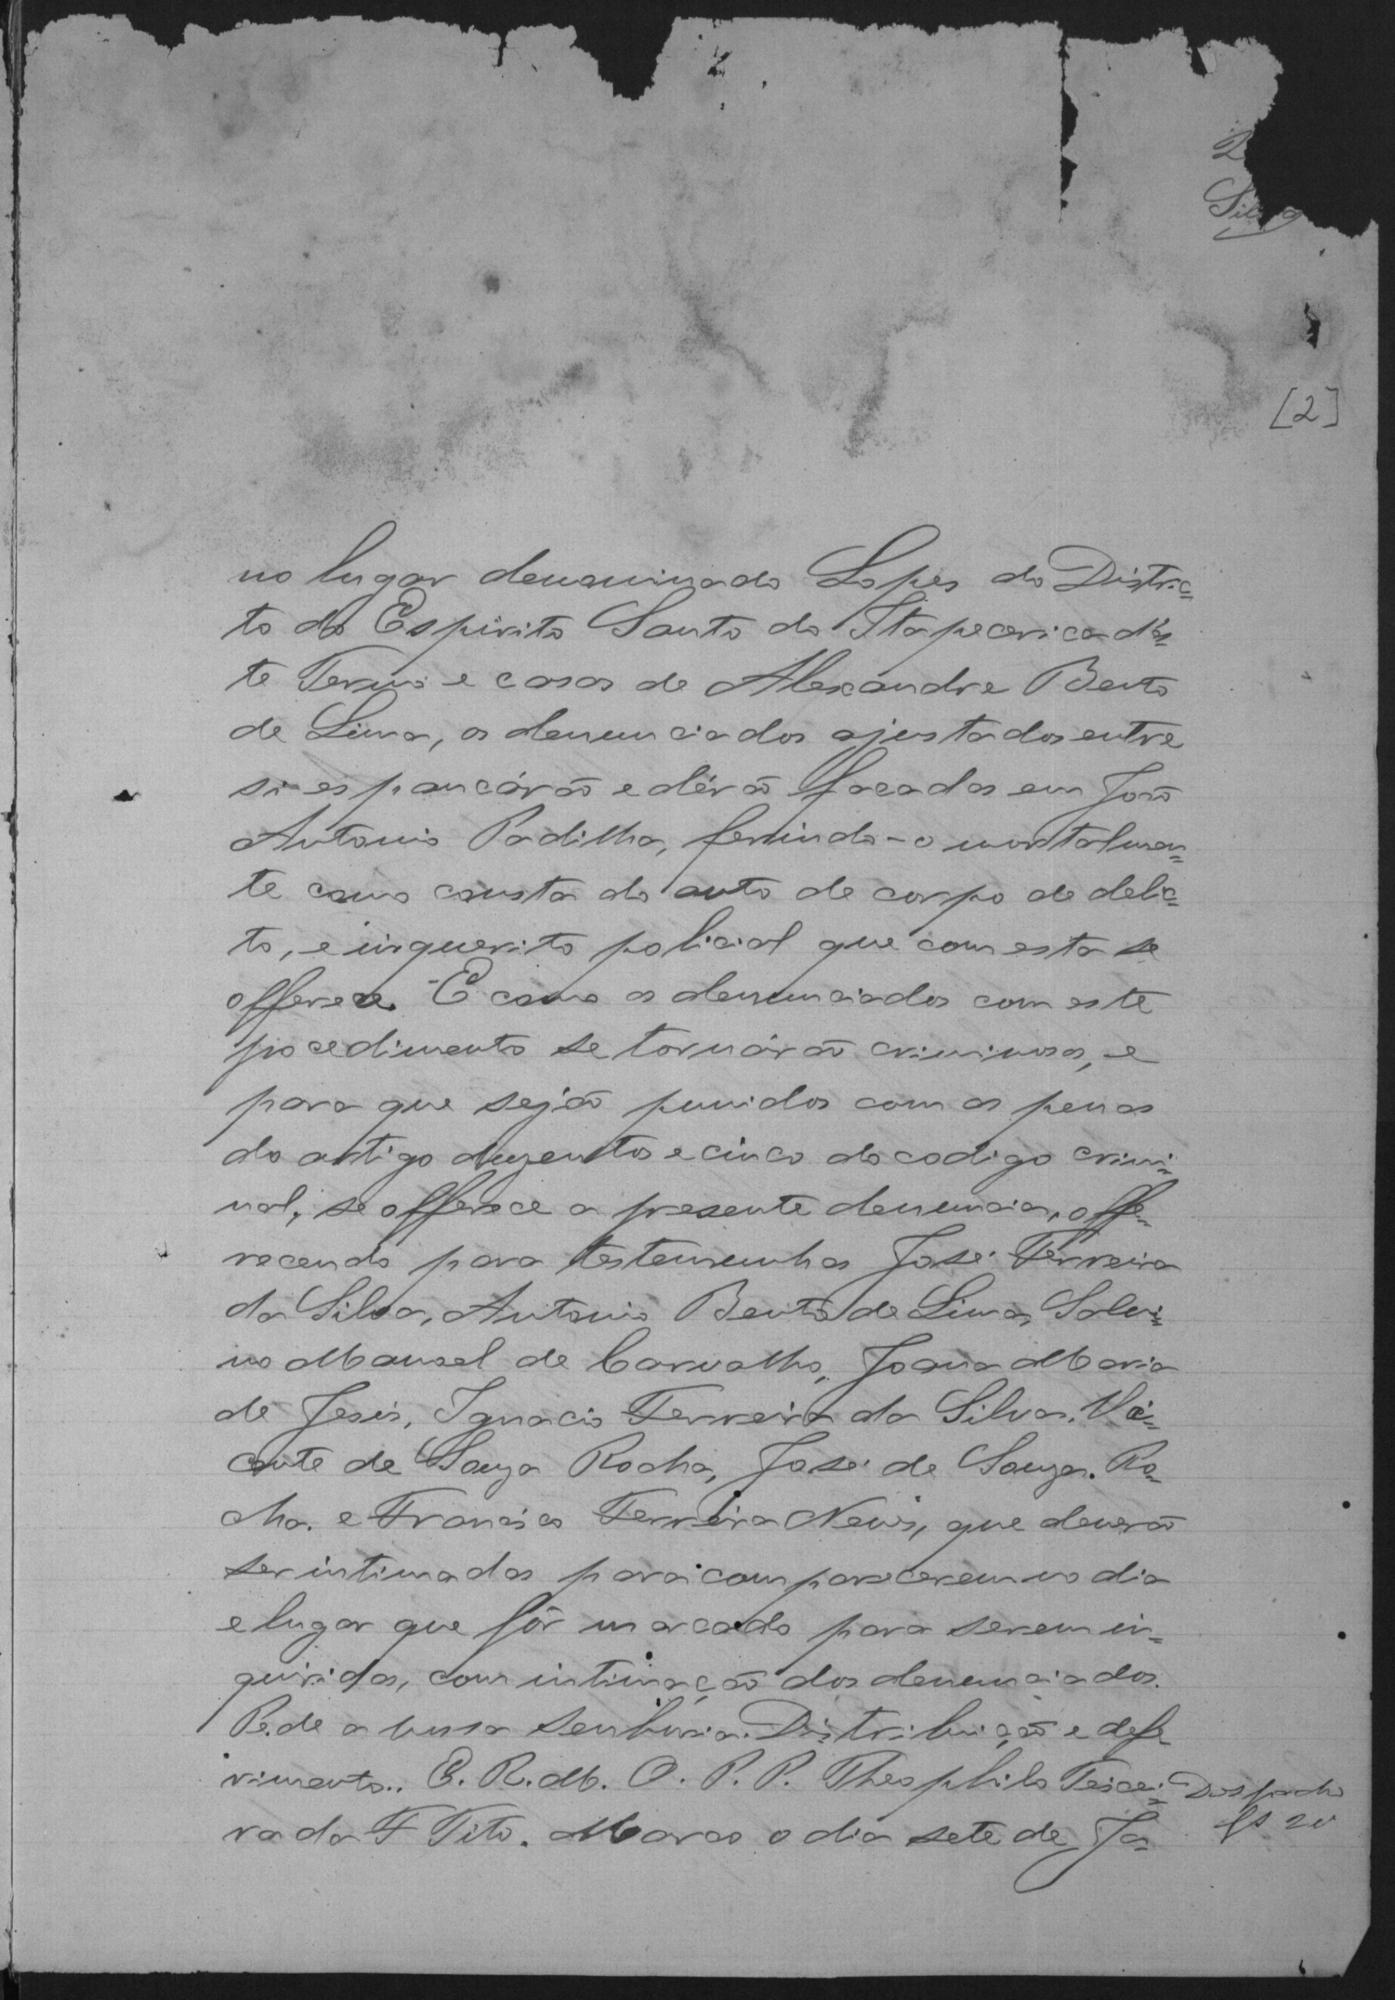 2
Silva
[2]
no lugar denominado Lopes do Distric=
to do Espirito Santo do Itapecerica d'es=
te Termo e casas de Alexandre Bento
de Lima, os denunciados ajustados entre
si espancárão e dérão facadas em João
Antonio Padilha, ferindo-o mortalmen=
te como consta do auto de corpo de delic=
to, e inquerito policial que com esta se
offerece. E como os denunciados com este
procedimento se tornárão criminosos, e
para que sejão punidos com as penas
do artigo duzentos e cinco do codigo crimi=
nal, se offerece a presente denuncia, offe=
recendo para testemunhas José Ferreira
da Silva, Antonio Bento de Lima, Salvi=
no Manoel de Carvalho, Joana Maria
de Jesus, Ignacio Ferreira da Silva, Vi=
cente de Souza Rocha, José de Souza Ro=
cha e Francisco Ferreira Neves, que deverão
ser intimados para comparecerem no dia
e lugar que fôr marcado para serem in=
quiridas, com intimação dos denunciados.
Pede a vossa senhoria Distribuição e defe=
rimento.. E. R. M. O. P. P. Theophilo Teixei=
ra da F Tito. Marco o dia sete de Ja=
Despacho
fs 20